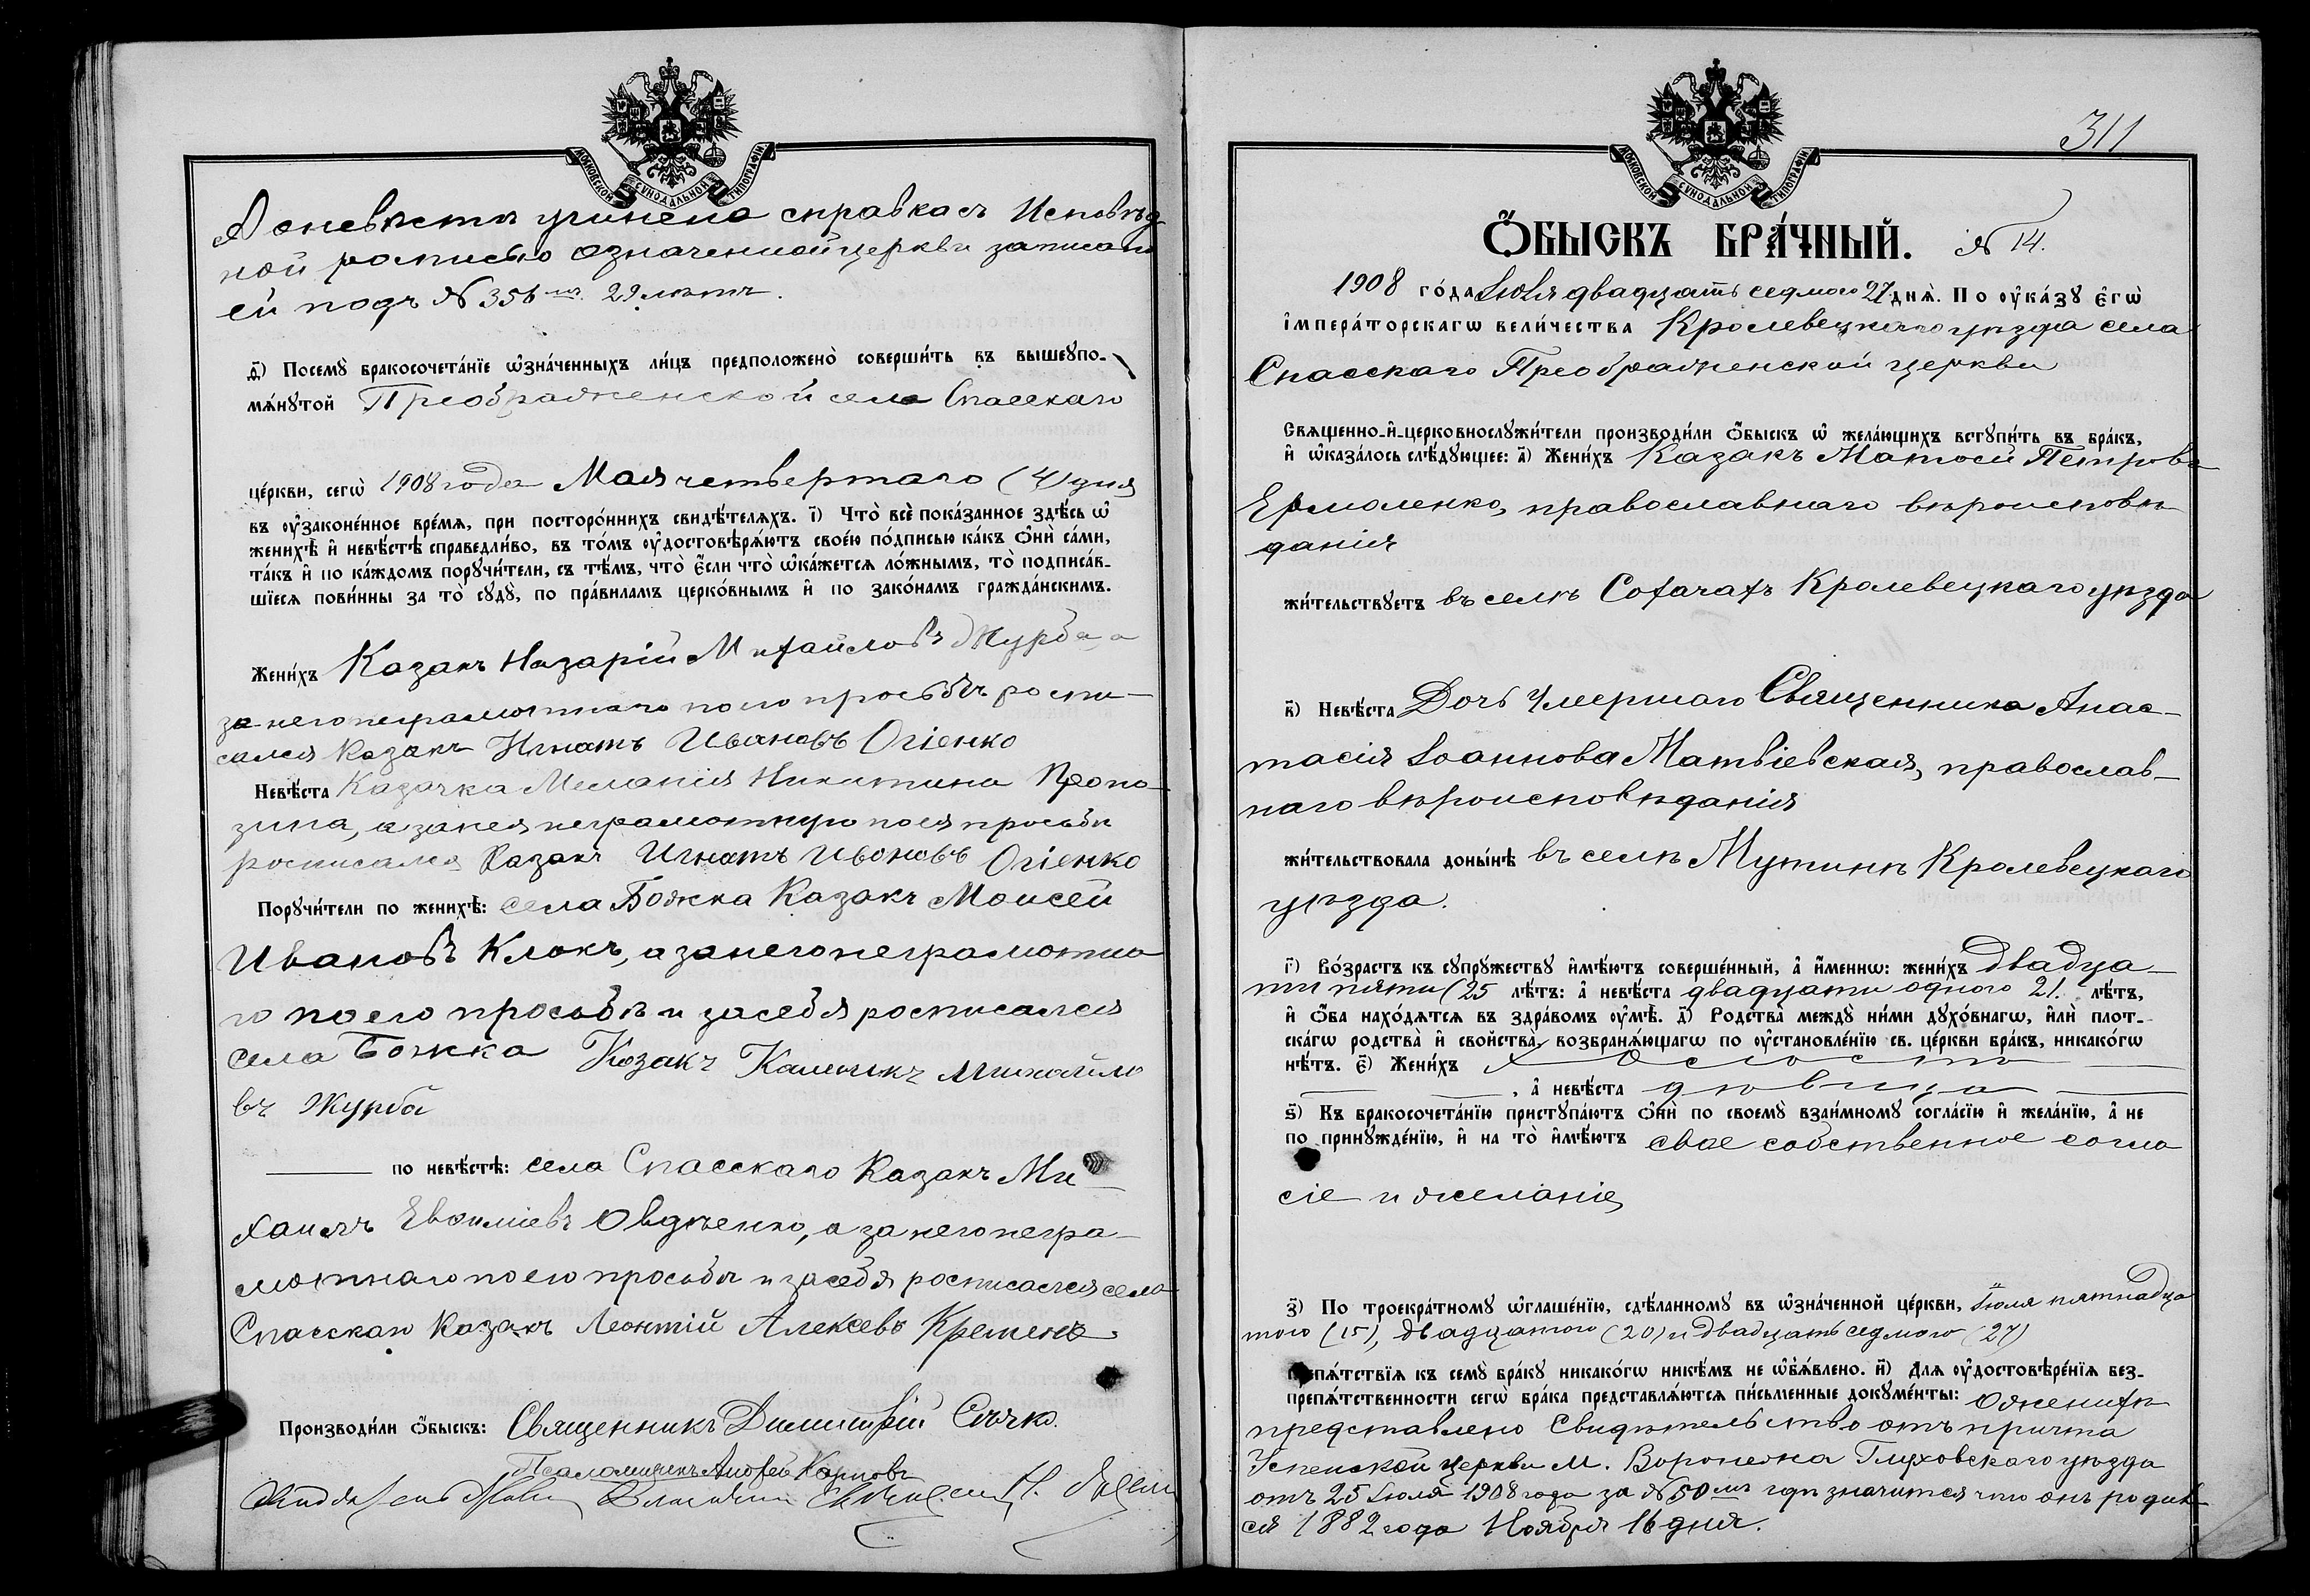 МОСКОВСКОЙ СѴНОДАЛЬНОЙ ТИПОГРАФІИ
А о невѣстѣ учинена справка съ Исповѣд
ной росписью означенной церкви записана
ей подъ № 356 мъ. 29 лѣтъ.
д҃) Посемꙋ̀ бракосочета́нїе ѡ҆зна́ченныхъ ли́цъ предположено̀ соверши́ть въ вышеꙋпо-
мѧ́нꙋтой Преображенской села Спасскаго
це́ркви, сегѡ̀ 1908 года Мая четвертаго (4) дня
въ ᲂу҆законе́нное вре́мѧ, при посторо́ннихъ свидѣ́телѧхъ. і҃) Что̀ всѐ пока́занное здѣ́сь ѡ҆
женихѣ̀ и҆ невѣ́стѣ справедли́во, въ то́мъ ᲂу҆достовѣрѧ́ютъ свое́ю по́дписью ка́къ ѻ҆нѝ са́ми,
та́къ и҆ по ка́ждомъ порꙋчи́тели, съ тѣ́мъ, что̀ є҆́сли что̀ ѡ҆ка́жетсѧ ло́жнымъ, то̀ подписа́в-
шїесѧ пови́нны за то̀ сꙋдꙋ̀, по пра́виламъ церко́внымъ и҆ по зако́намъ гражда́нскимъ.
Жени́хъ Казакъ Назарій Михайловъ Журба а
за него неграмотнаго по его просьбѣ роспи-
сался казакъ Игнатъ Ивановъ Огіенко
Невѣ́ста Казачка Меланія Никитина
зина, а за нея неграмотную по ея просьбѣ
росписался казакъ Игнатъ Ивановъ Огіенко
Порꙋчи́тели по женихѣ̀: села Божка Казакъ Моисей
Ивановъ Клокъ, а за него неграмотна
го по его просьбѣ и за себя росписался
села Божка Козакъ Каленикъ Михайло
въ Журба
по невѣ́стѣ: села Спасскаго Казакъ Ми
хаилъ Евѳиміевъ Овдѣенко, а за него негра-
мотнаго по его просьбѣ и за себя росписался села
Спасскаго Казакъ Леонтій Алексѣевъ Кремень
Производи́ли ѻ҆́быскъ: Священникъ Димитрій Сѣчко.
Псаломщикъ Андрей Карповъ
311
МОСКОВСКОЙ СѴНОДАЛЬНОЙ ТИПОГРАФІИ
Ѻ҆́БЫСКЪ БРА́ЧНЫЙ. № 14.
1908 го́да Іюля двадцать седмого 27 днѧ̀. По ᲂу҆ка́зꙋ є҆гѡ̀
і҆мпера́торскагѡ вели́чества Кролевецкаго уѣзда села
Спасскаго Преображенской церкви
Свѧщенно-и҆-церковнослꙋжи́тели производи́ли ѻ҆́быскъ ѡ҆ жела́ющихъ встꙋпи́ть въ бра́къ,
и҆ ѡ҆каза́лось слѣ́дꙋющее: а҃) Жени́хъ Казакъ Матѳей Петровъ
Ермоленко, православнаго вѣроисповѣ
данія
жи́тельствꙋетъ въ селѣ Собичахъ Кролевецкаго уѣзда
в҃) Невѣ́ста Дочь умершаго Священника Анас-
тасія Іоаннова Матвіевская, православ-
наго вѣроисповѣданія
жи́тельствовала доны́нѣ въ селѣ Мутинѣ Кролевецкаго
уѣзда.
г҃) Во́зрастъ къ сꙋпрꙋ́жествꙋ и҆мѣ́ютъ соверше́нный, а҆ и҆́меннѡ: жени́хъ двадца-
ти пяти (25 лѣ́тъ: а҆ невѣ́ста двадцати одного 21. лѣ́тъ,
и҆ ѻ҆́ба нахо́дѧтсѧ въ здра́вомъ ᲂу҆мѣ̀. д҃) Родства̀ междꙋ̀ ни́ми дꙋхо́внагѡ, и҆лѝ плот-
ска́гѡ родства̀ и҆ сво́йства̀, возбранѧ́ющагѡ по ᲂу҆становле́нїю св. це́ркви бра́къ, никако́гѡ
нѣ́тъ. є҃) Жени́хъ холостъ
, а҆ невѣ́ста дѣвица
ѕ҃) Къ бракосочета́нїю пристꙋпа́ютъ ѻ҆нѝ по своемꙋ̀ взаи́мномꙋ согла́сїю и҆ жела́нїю, а҆ не
по принꙋжде́нїю, и҆ на то̀ и҆мѣ́ютъ свое собственное согла
сіе и желаніе
з҃) По троекра́тномꙋ ѡ҆глаше́нїю, сдѣ́ланномꙋ въ ѡ҆зна́ченной це́ркви, Іюля пятнадца
того (15), двадцатого (20) и двадцать седмого (27)
препѧ́тствїѧ къ семꙋ̀ бра́кꙋ никако́гѡ никѣ́мъ не ѡ҆б̾ѧ́влено. и҃) Длѧ ᲂу҆достовѣре́нїѧ без-
препѧ́тственности сегѡ̀ бра́ка представлѧ́ютсѧ пи́сьменные докꙋме́нты: О женихѣ
представлено Свидѣтельство отъ причта
Успенской церкви м. Воронежа Глуховскаго уѣзда
отъ 25 Іюля 1908 года за № 50 мъ гдѣ значится что онъ родил
ся 1882 года Ноября 16 дня.